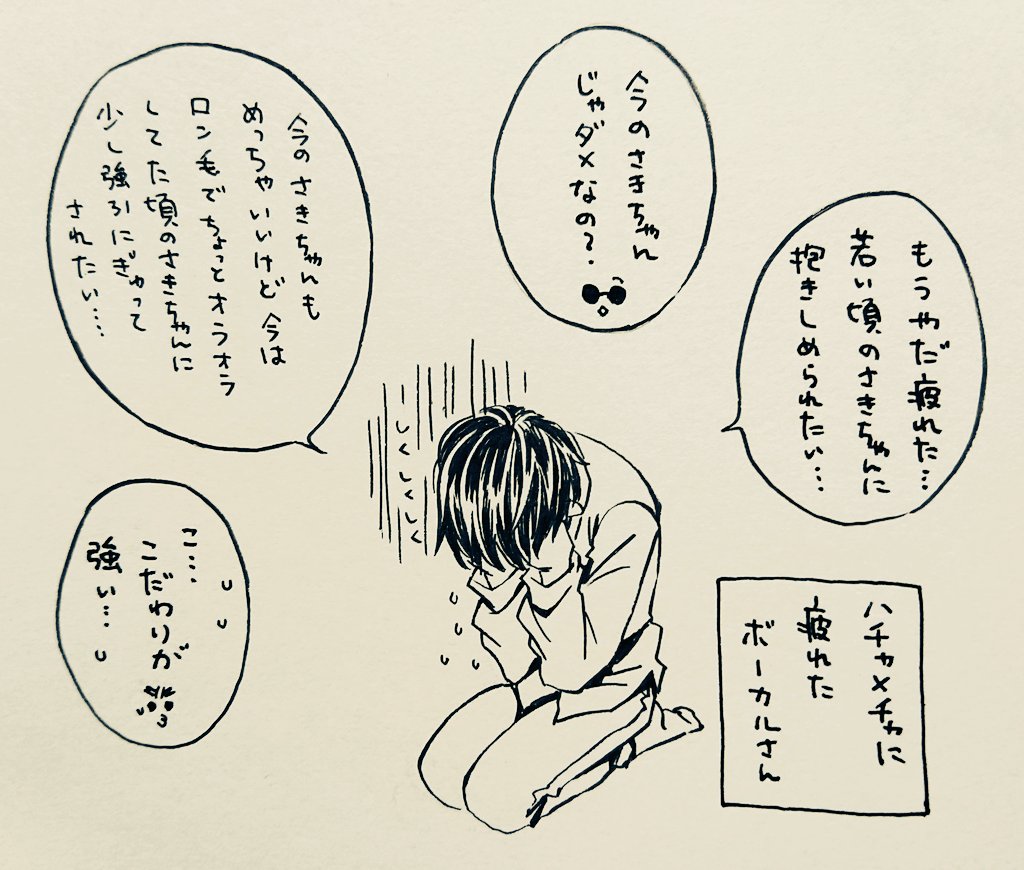 もうやだ疲れた…
若い頃のさきちゃんに
抱きしめられたい…
今のさきちゃん
じゃダメなの?
今のさきちゃんも
めっちゃいいけど今は
ロン毛でちょっとオラオラ
してた頃のさきちゃんに
少し強引にぎゅって
されたい……
こ…
こだわりが
強い…
しくしくしく
ハチャメチャに
疲れた
ボーカルさん